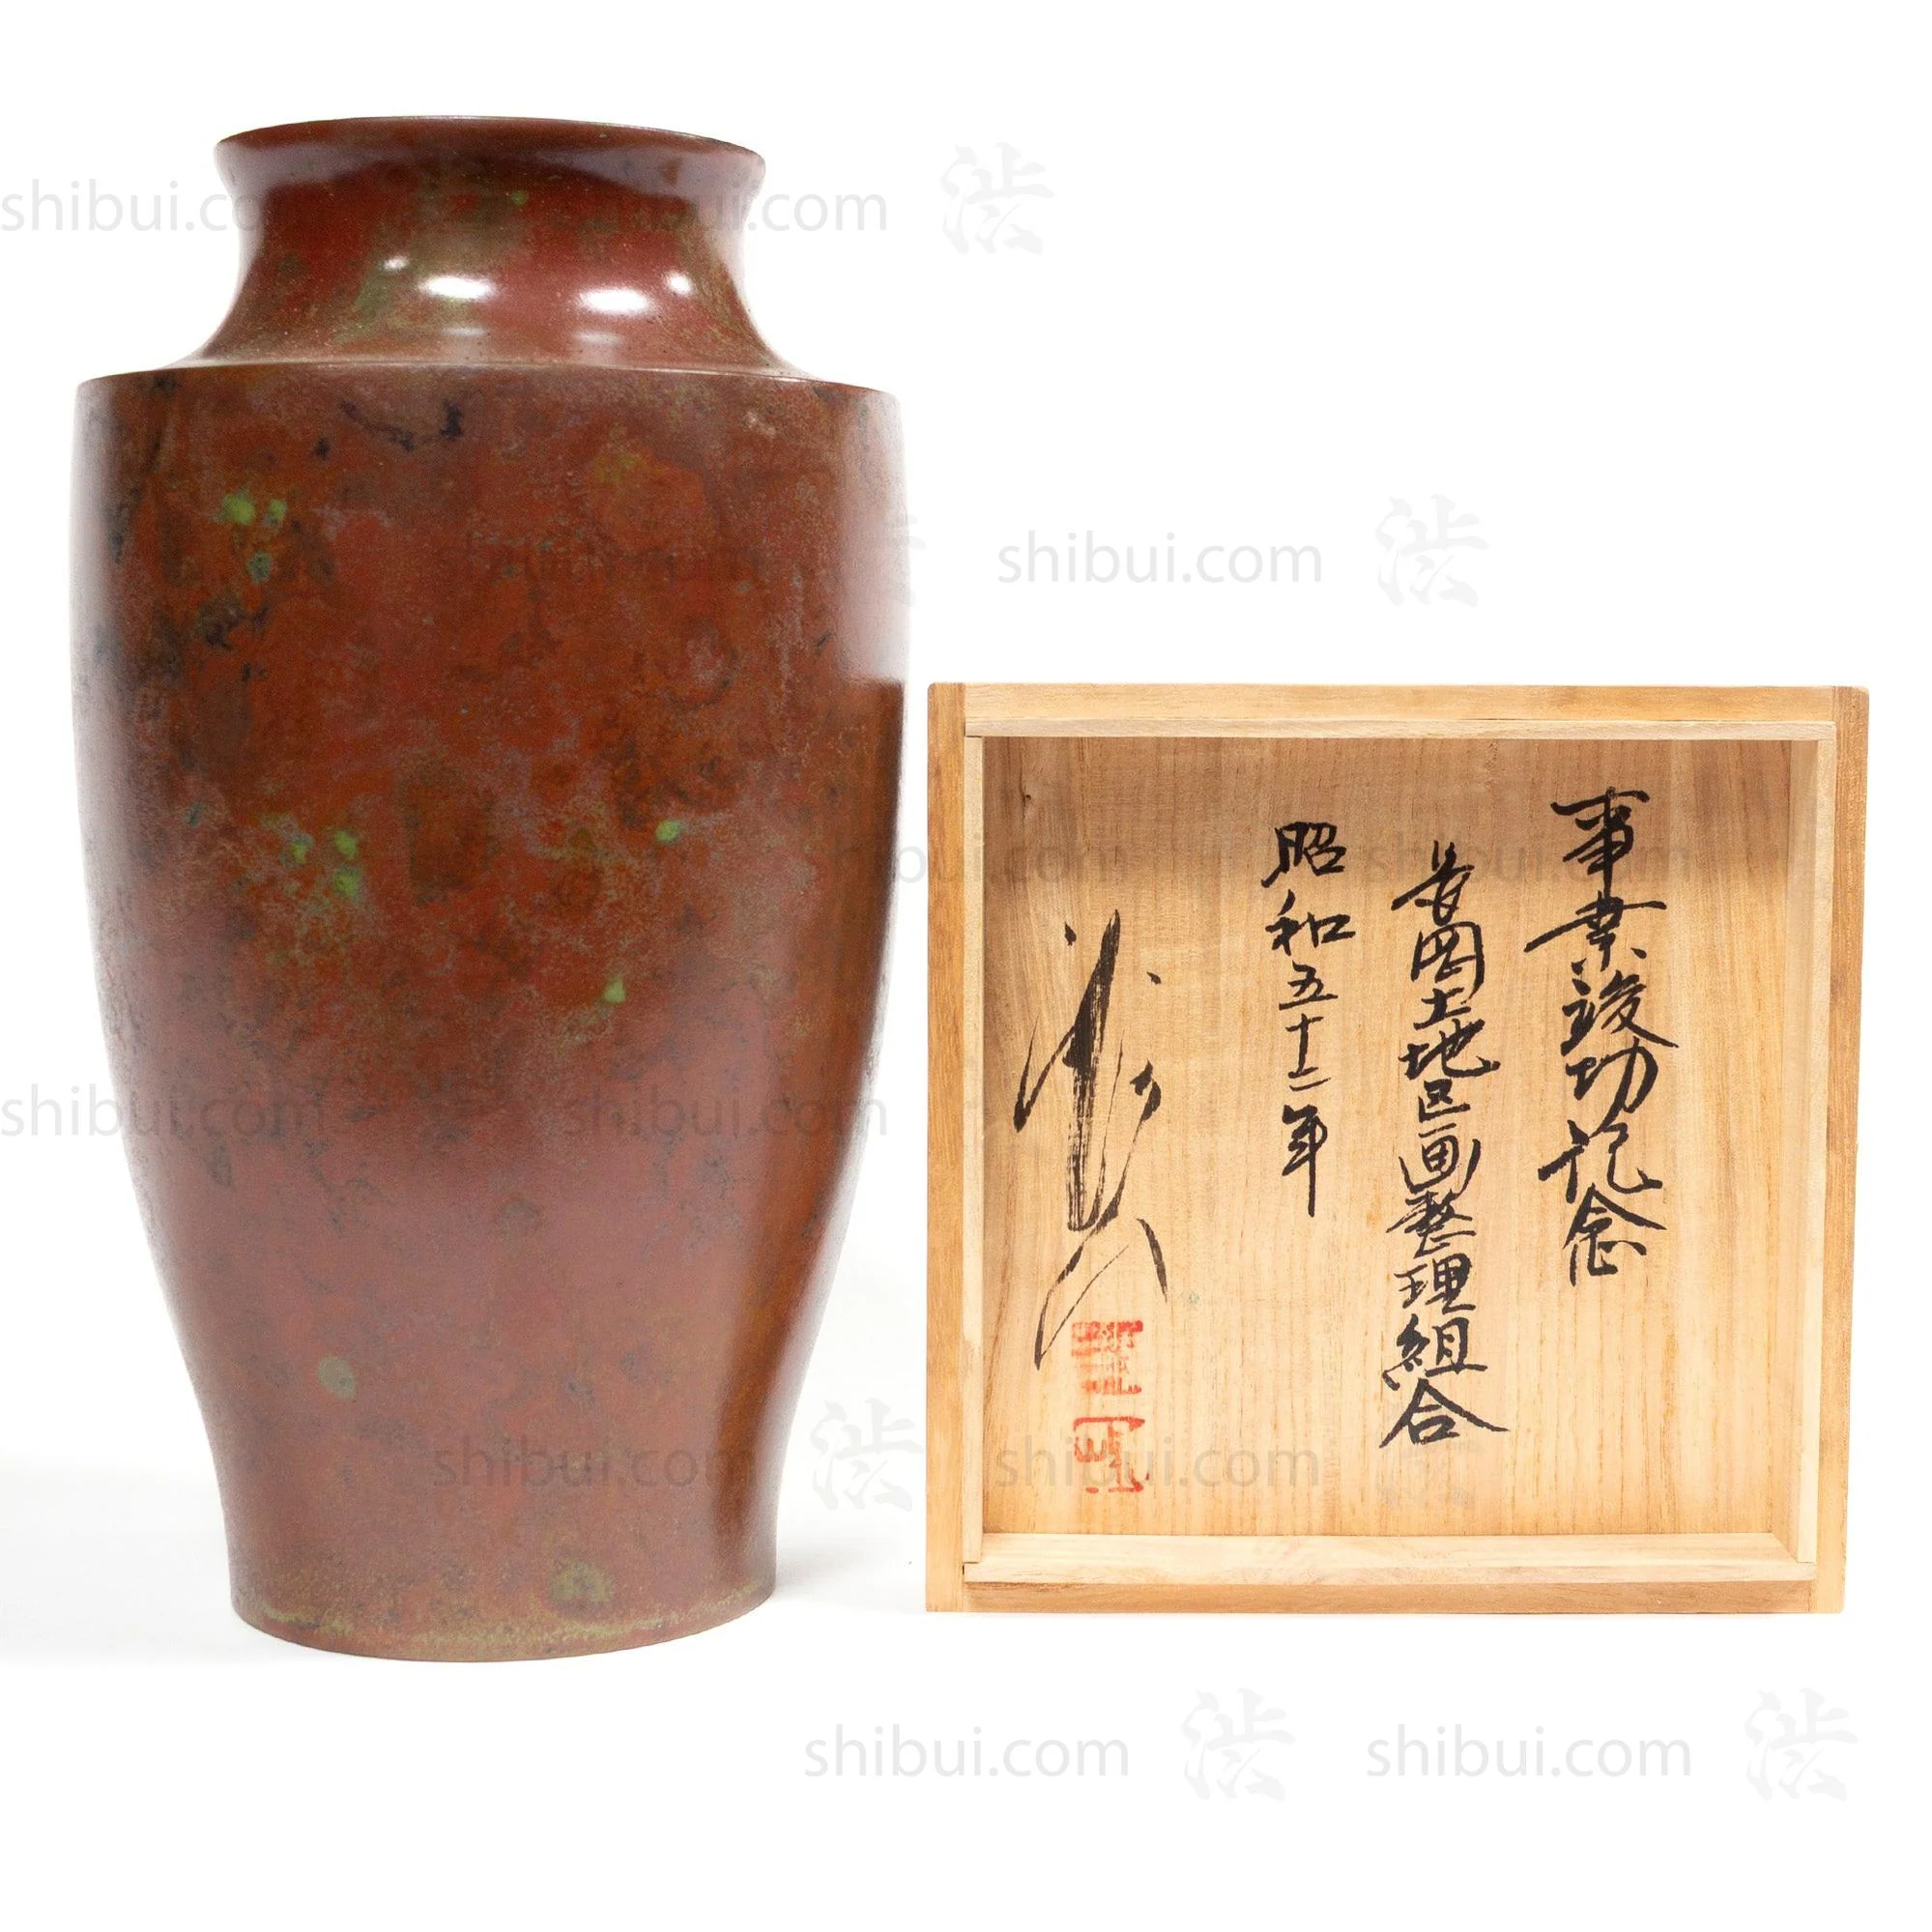 shibui.com
渋
shibui.com
渋
事業竣功記念
長岡土地区画整理組合
昭和五十二年
shibui.com
shibui.com
shibui.com
shibui.com
shibui.com
渋
shibui.com
shibui.com
渋
shibui.com
渋